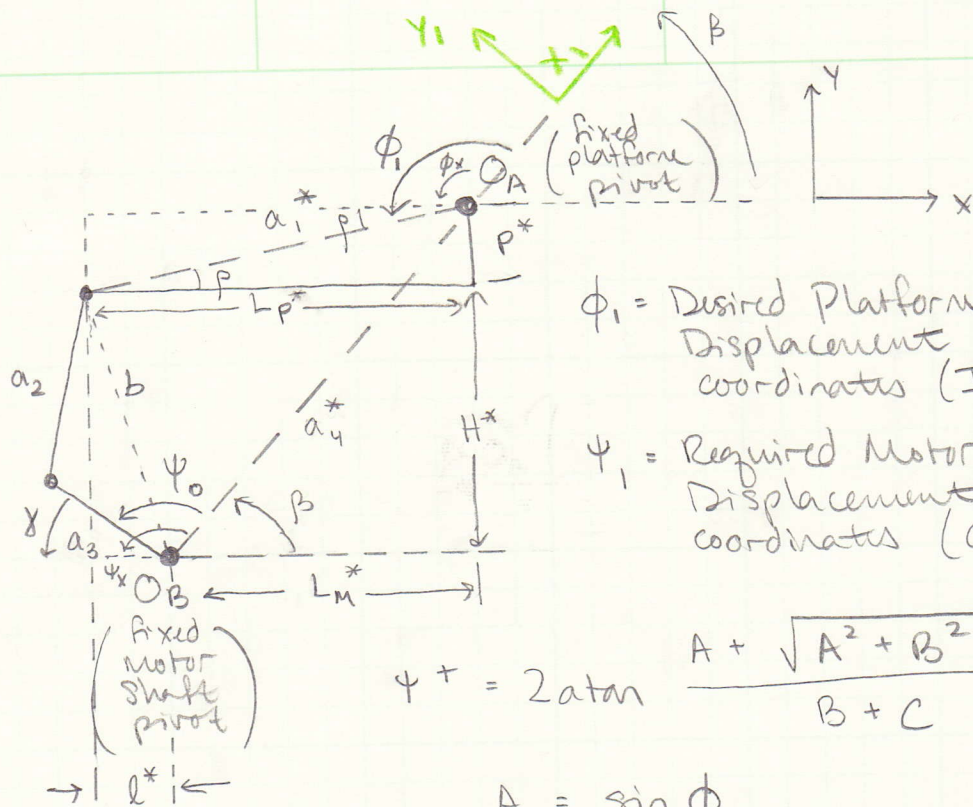 Y₁
X₁
β
Y
X
ϕ₁
ϕx
O_A
(fixed
platforme
pivot)
a₁*
ρ
ρ
P*
L_P*
a₂
b
a₄*
H*
ψ₀
β
γ
a₃
ψx
O_B
L_M*
(fixed
motor
shaft
pivot)
l*
ϕ₁ = Desired Platform
Displacement
coordinates (I
ψ₁ = Required Motor
Displacement
coordinates (
ψ⁺ = 2atan (A + √(A² + B²
B + C
A = sin ϕ